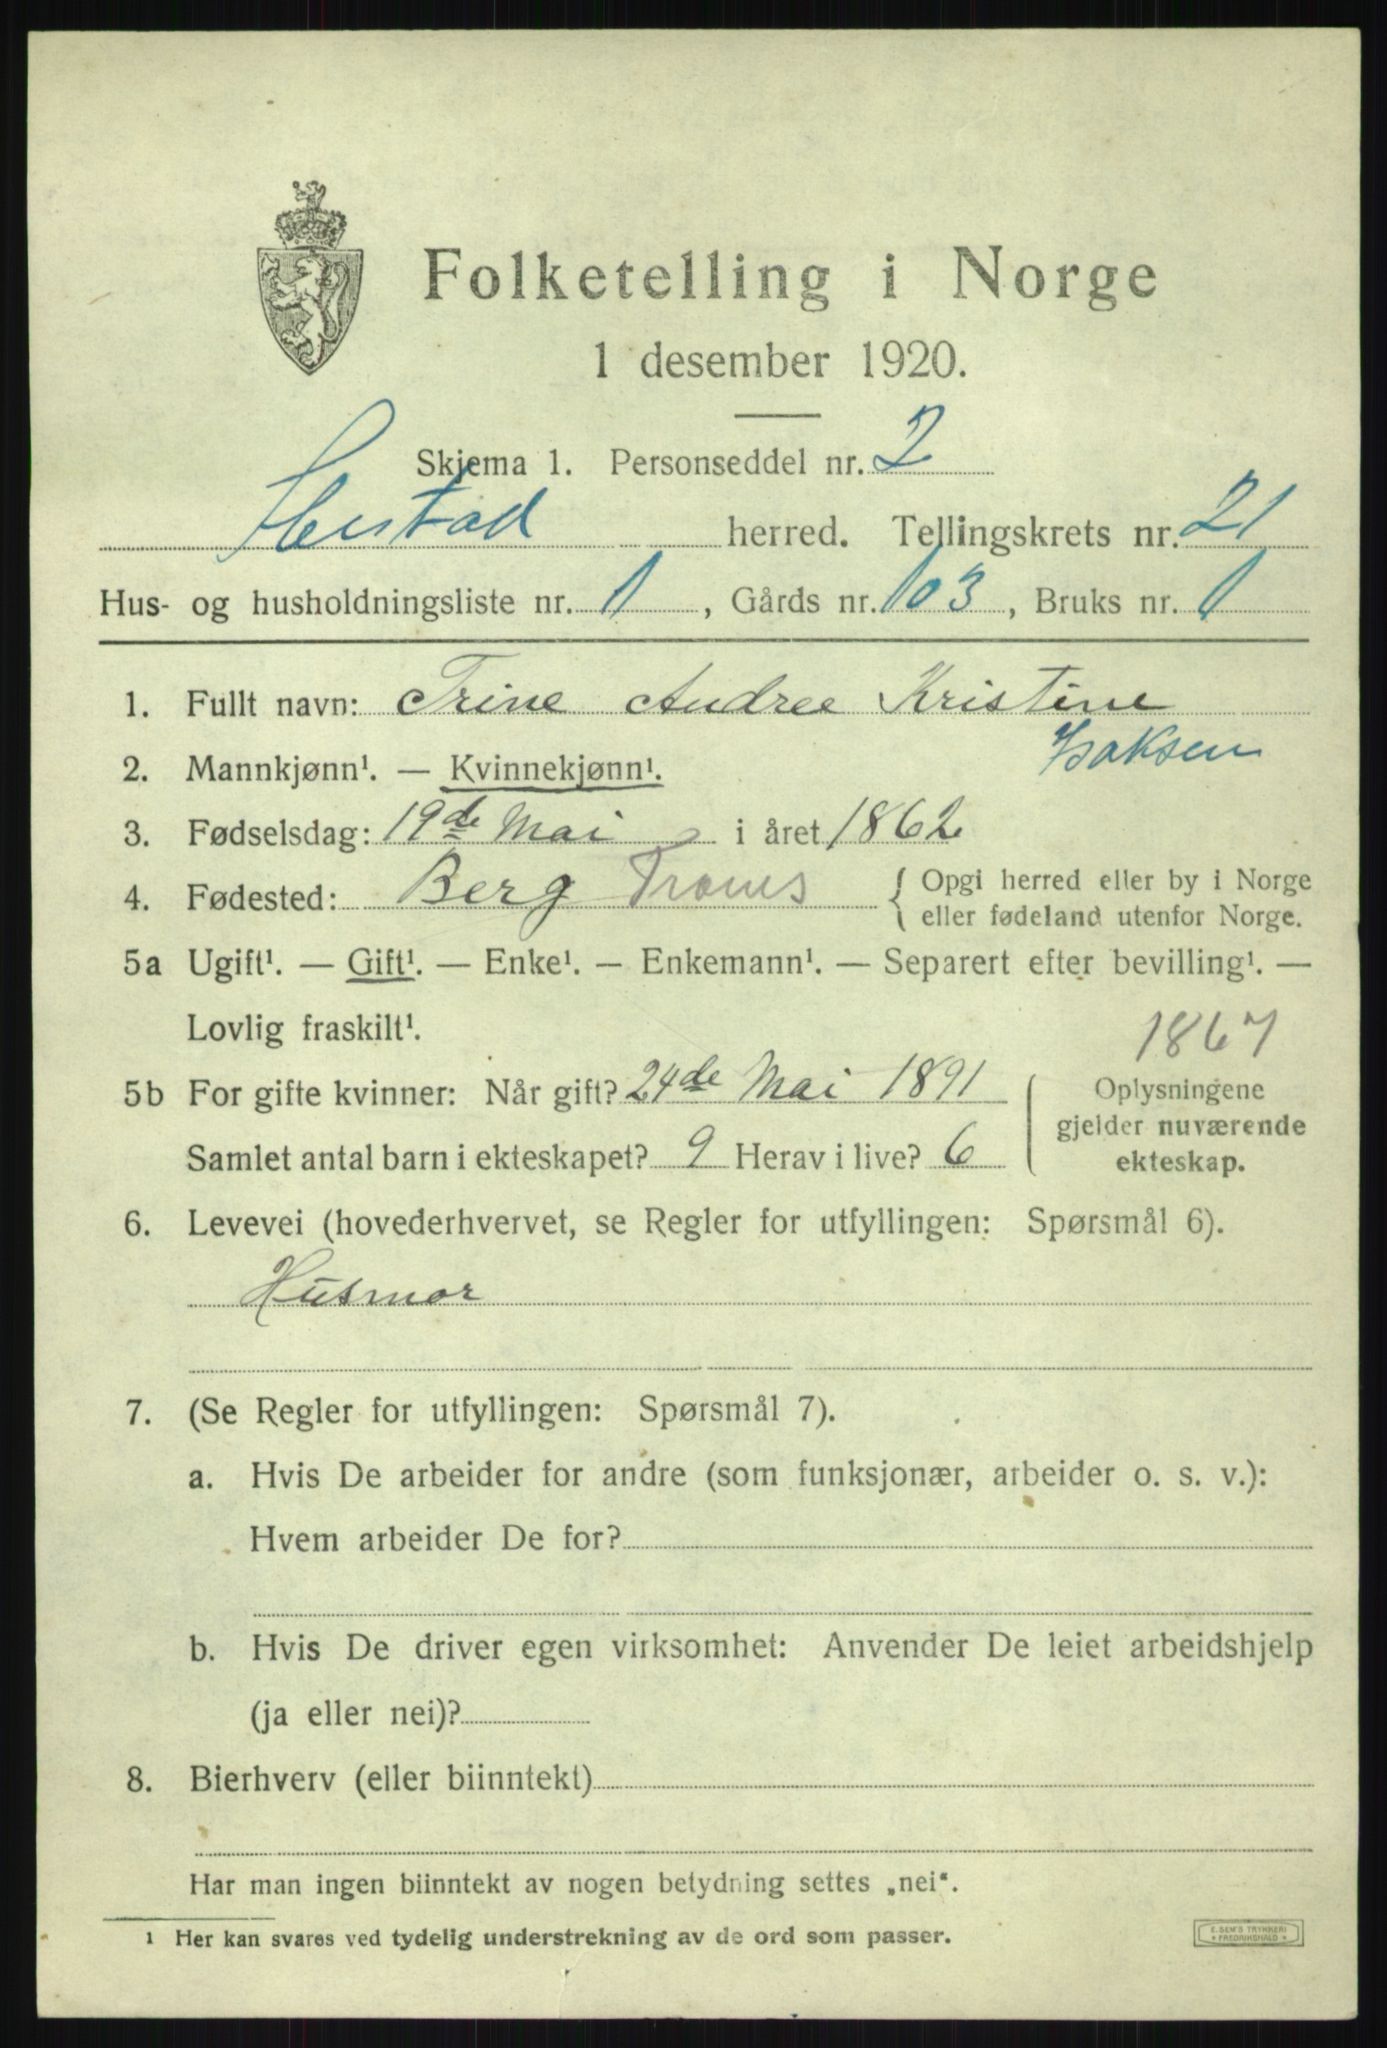 Folketelling i Norge
1 desember 1920.
Skjema 1. Personseddel nr. 2
herred. Tellingskrets nr. 21
Hus- og husholdningsliste nr. 1, Gårds nr. 103, Bruks nr. 1
1. Fullt navn: Trine Andree Kristine
Isaksen
2. Mannkjønn¹. — Kvinnekjønn¹.
3. Fødselsdag: 19de Mai i året 1862
4. Fødested: Berg Troms { Opgi herred eller by i Norge
eller fødeland utenfor Norge.
5a Ugift¹. — Gift¹. — Enke¹. — Enkemann¹. — Separert efter bevilling¹. —
Lovlig fraskilt¹.
1867
5b For gifte kvinner: Når gift? 24de Mai 1891
Samlet antal barn i ekteskapet? 9 Herav i live? 6
Oplysningene
gjelder nuværende
ekteskap.
6. Levevei (hovederhvervet, se Regler for utfyllingen: Spørsmål 6).
Husmor
7. (Se Regler for utfyllingen: Spørsmål 7).
a. Hvis De arbeider for andre (som funksjonær, arbeider o. s. v.):
Hvem arbeider De for?
b. Hvis De driver egen virksomhet: Anvender De leiet arbeidshjelp
(ja eller nei)?
8. Bierhverv (eller biinntekt)
Har man ingen biinntekt av nogen betydning settes „nei“.
1 Her kan svares ved tydelig understrekning av de ord som passer.
E. SEM'S TRYKKERI
FREDRIKSHALD